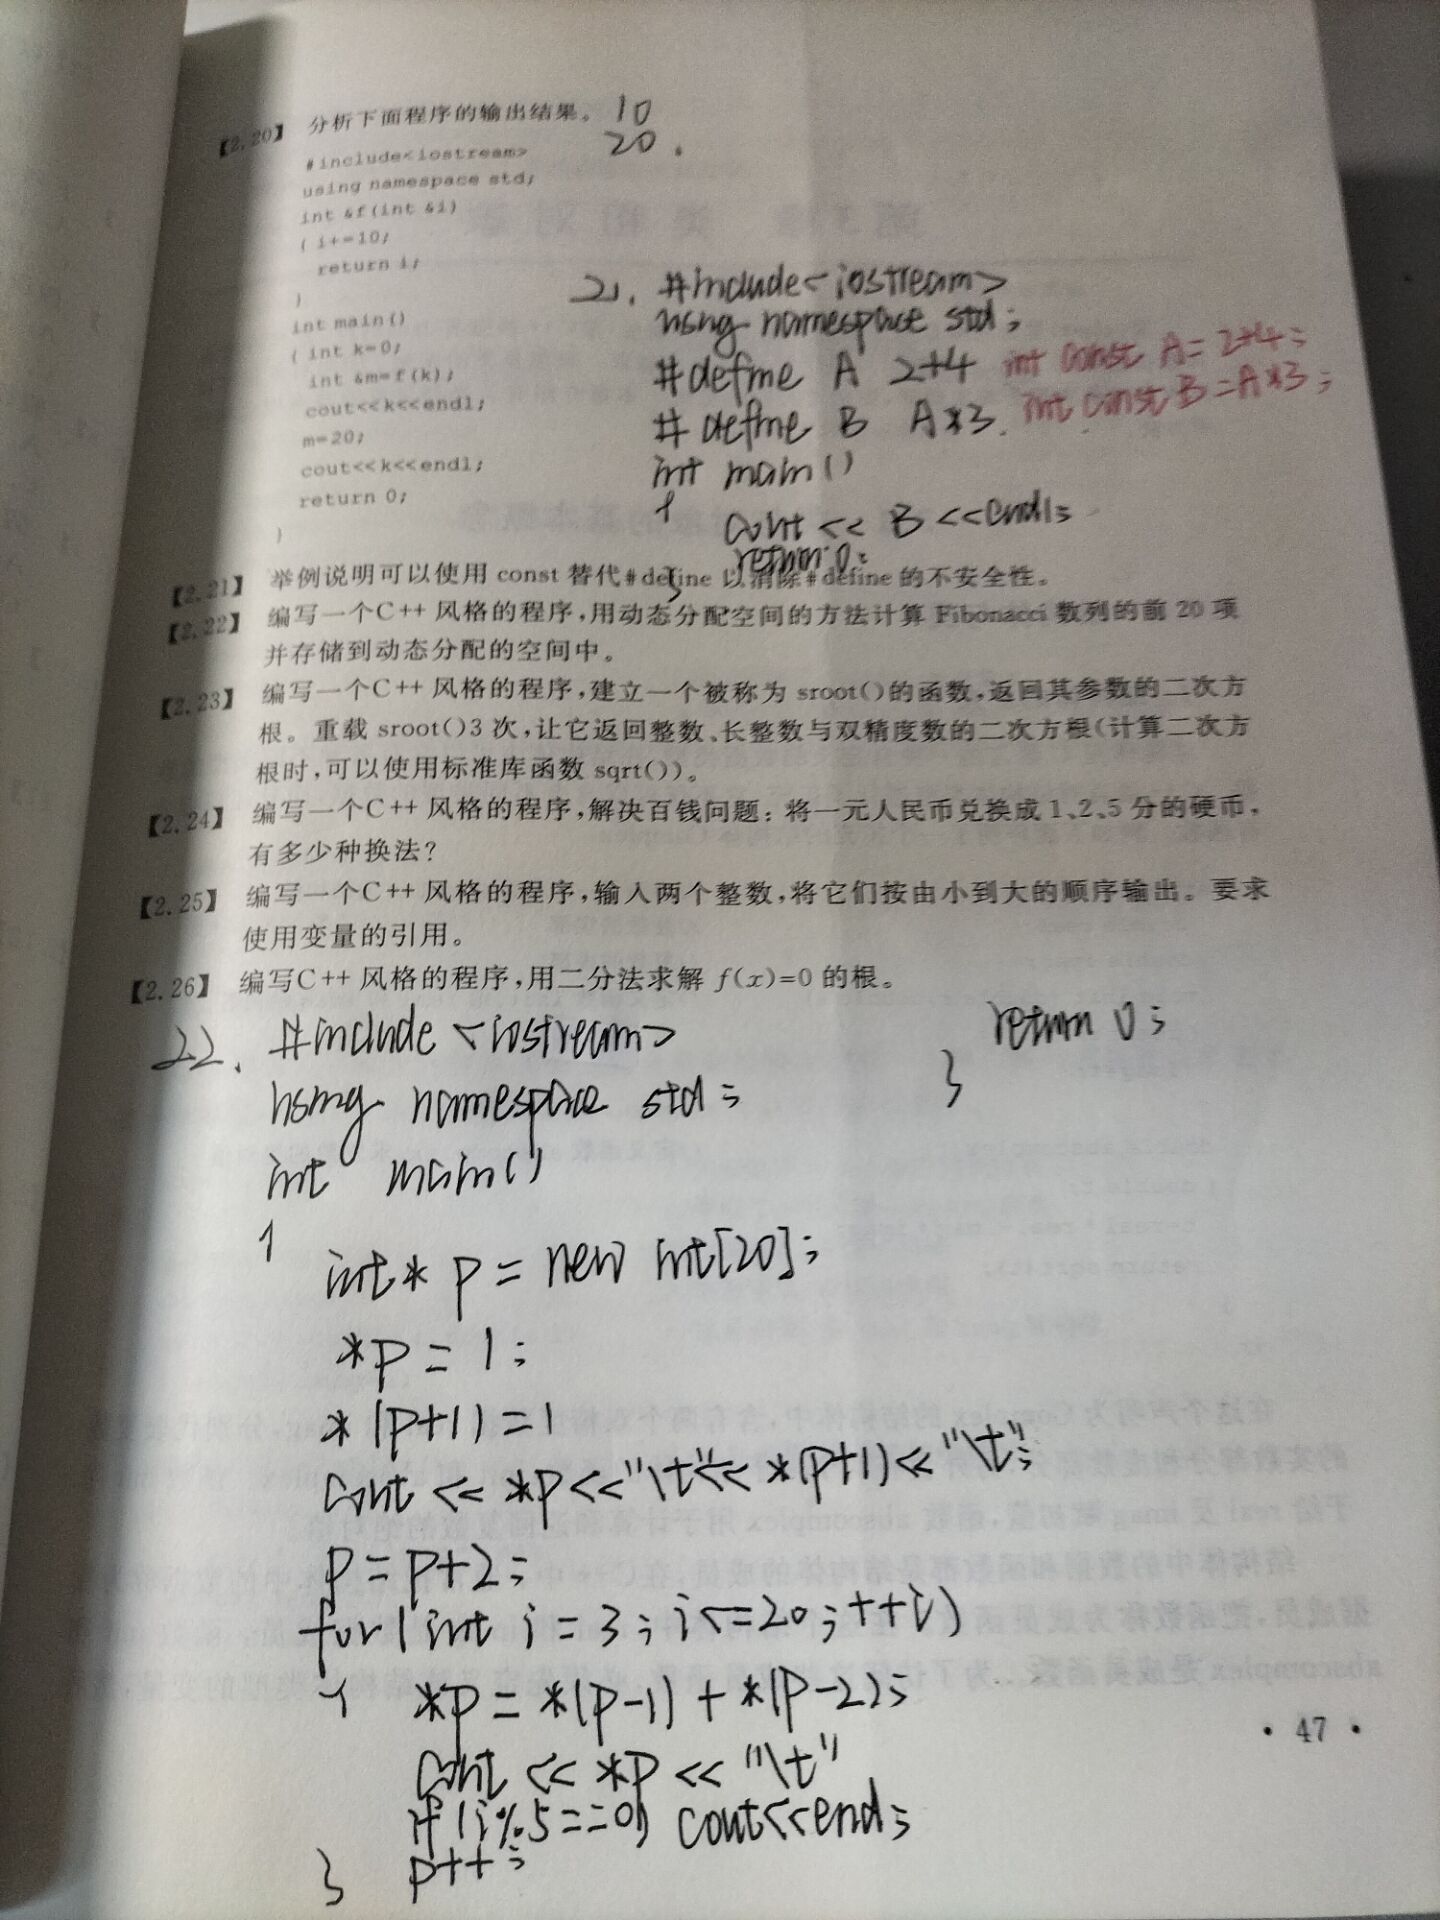 【2.20】 分析下面程序的输出结果。 10
20.
#include<iostream>
using namespace std;
int &f(int &i)
{ i+=10;
return i;
}
int main()
{ int k=0;
int &m=f(k);
cout<<k<<endl;
m=20;
cout<<k<<endl;
return 0;
}
21. #include<iostream>
using namespace std;
#define A 2+4 int const A=2+4;
#define B A*3. int const B=A*3;
int main()
{
cout << B <<endl;
return 0;
}
【2.21】 举例说明可以使用 const 替代#define 以消除#define 的不安全性。
【2.22】 编写一个C++ 风格的程序,用动态分配空间的方法计算 Fibonacci 数列的前 20 项
并存储到动态分配的空间中。
【2.23】 编写一个C++ 风格的程序,建立一个被称为 sroot()的函数,返回其参数的二次方
根。重载 sroot()3 次,让它返回整数、长整数与双精度数的二次方根(计算二次方
根时,可以使用标准库函数 sqrt())。
【2.24】 编写一个C++ 风格的程序,解决百钱问题:将一元人民币兑换成 1、2、5 分的硬币,
有多少种换法?
【2.25】 编写一个C++ 风格的程序,输入两个整数,将它们按由小到大的顺序输出。要求
使用变量的引用。
【2.26】 编写C++ 风格的程序,用二分法求解 f(x)=0 的根。
22. #include <iostream>
using namespace std;
int main()
{
int* p = new int[20];
*p = 1;
*(p+1) = 1
cout << *p<<"\t"<< *(p+1)<< "\t";
p = p+2;
for(int i = 3; i<=20; ++i)
{ *p = *(p-1) + *(p-2);
cout << *p << "\t"
if (i%5==0) cout<<end;
} p++;
return 0;
}
• 47 •